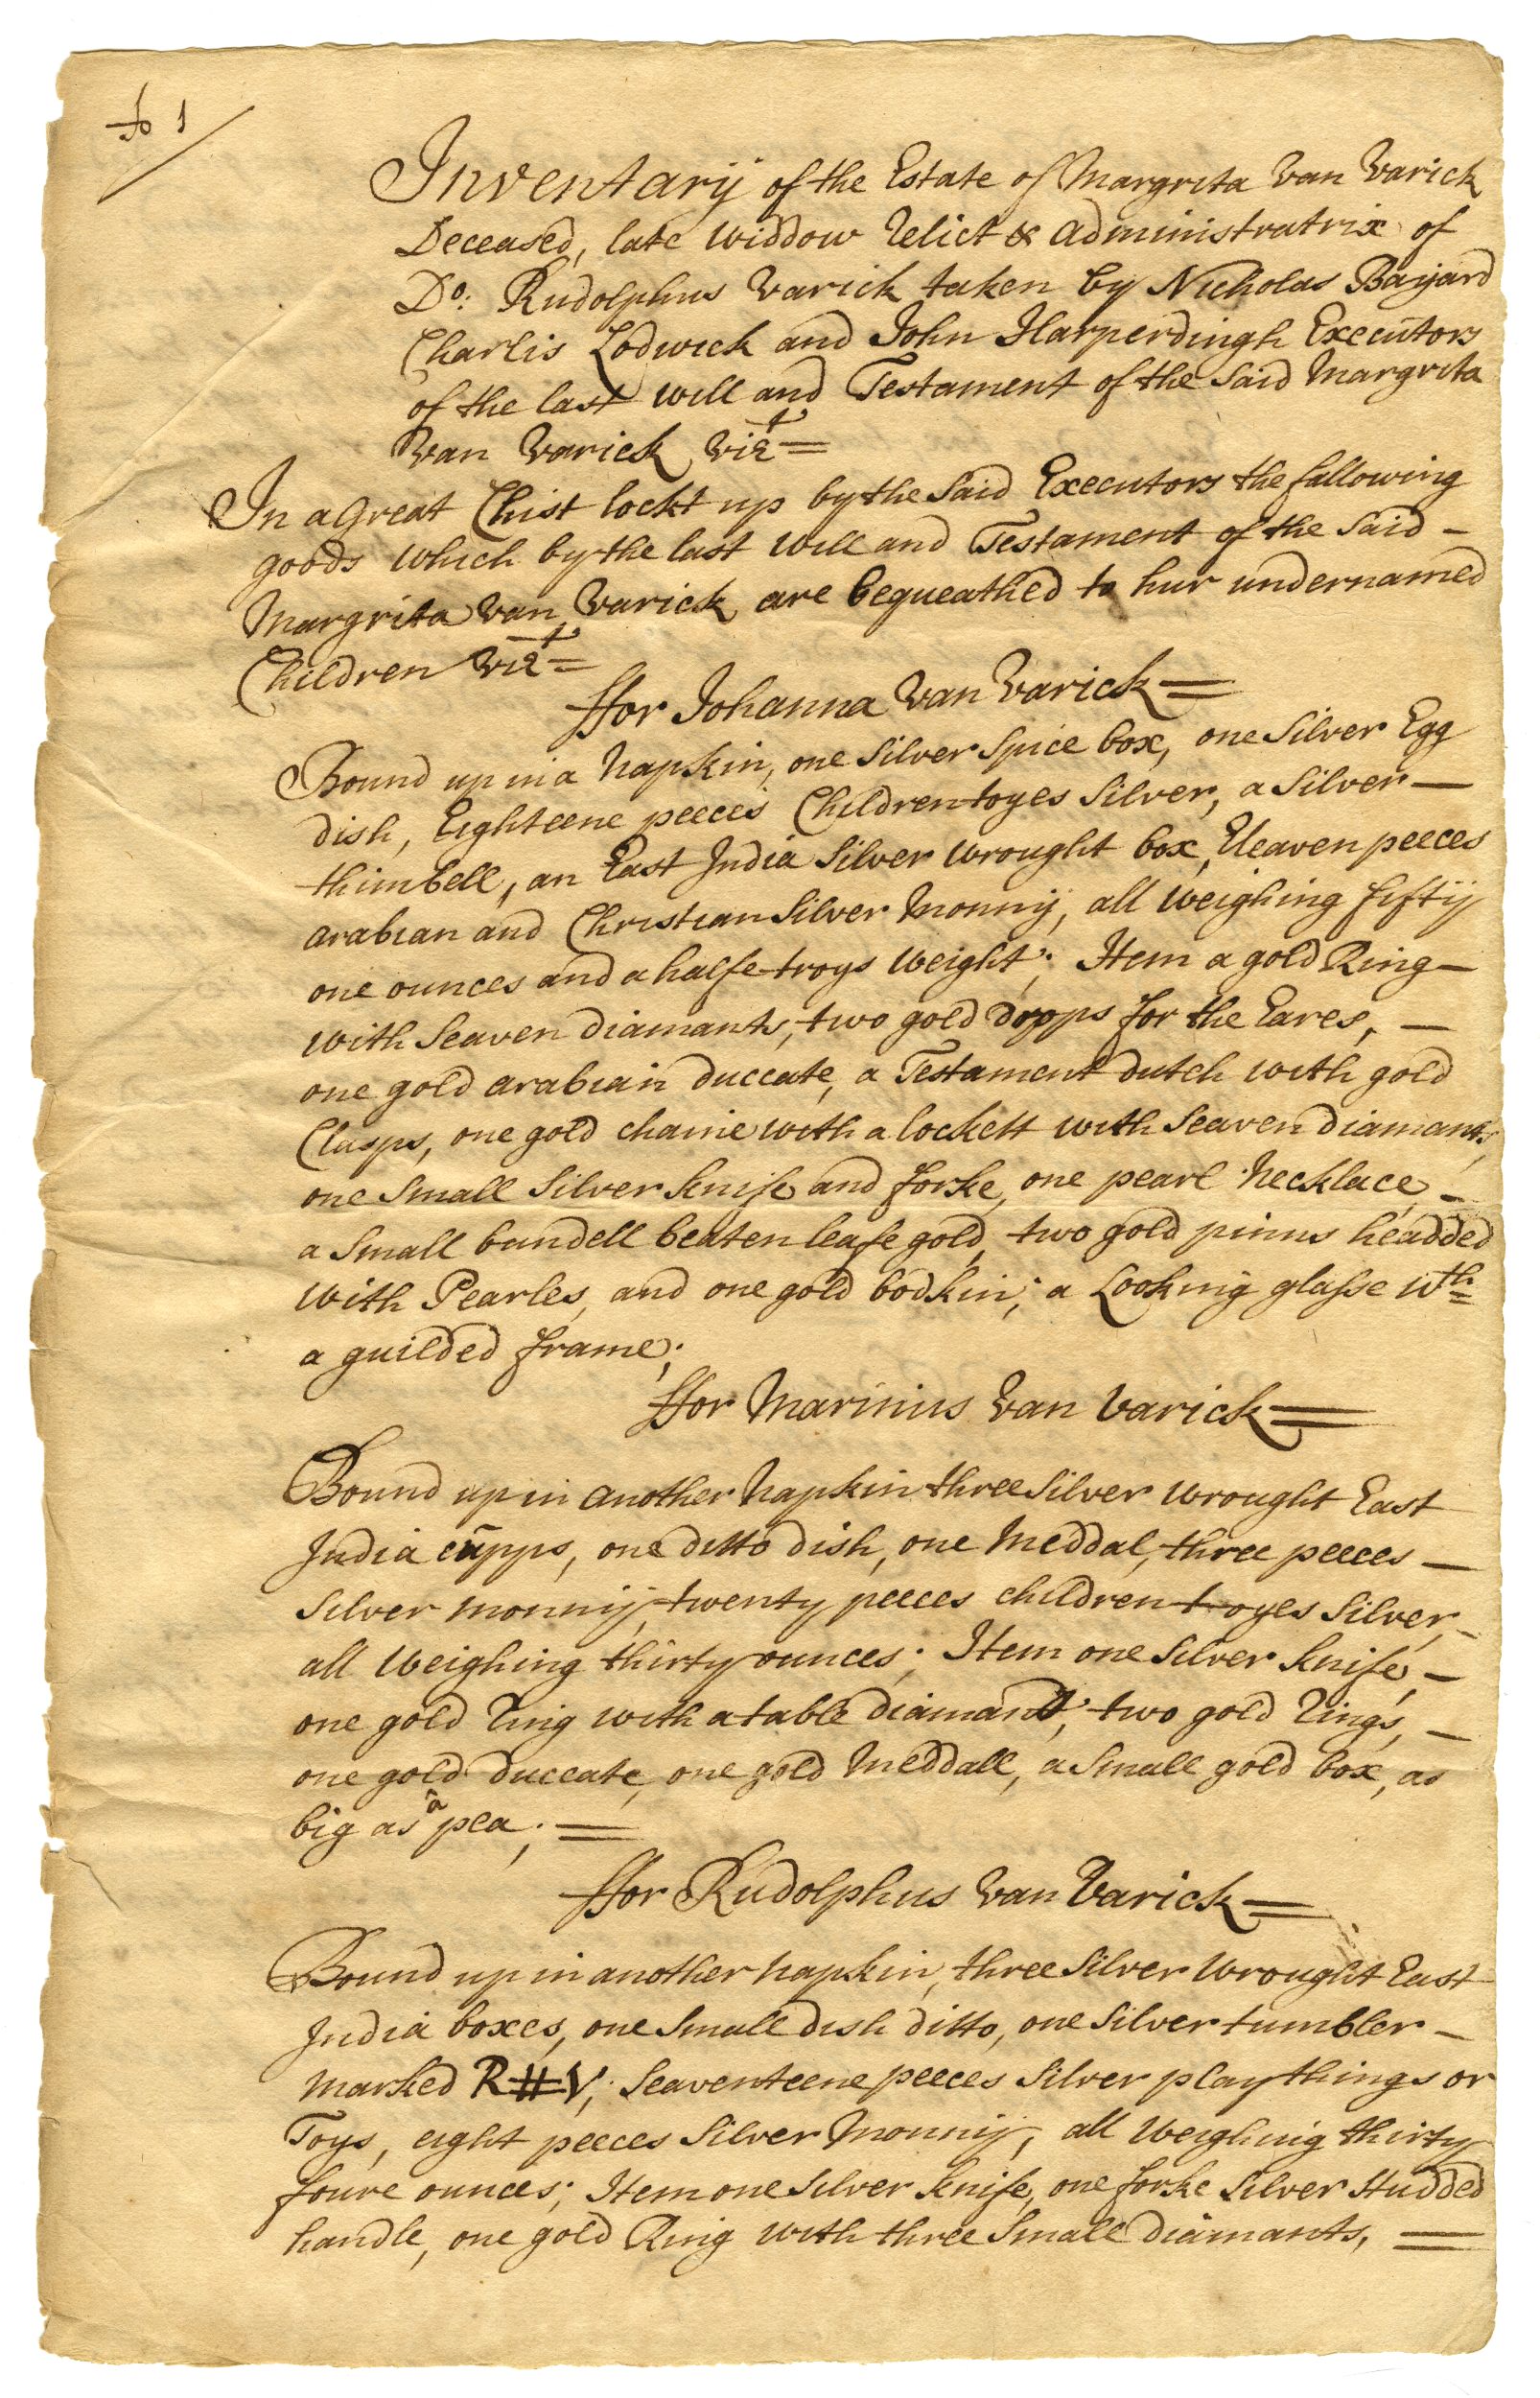 fo 1
Inventarij of the Estate of Margrita Van Varick
Deceased, late widdow Relict & administratrix of
Do: Rudolphus Varick taken by Nicholas Bayard
Charlis Lodwick and John Harperdingh Executors
of the last will and Testament of the said Margrita
Van Varick vizt =
In a Great Chist lockt up by the said Executors the fallowing
goods which by the last will and Testament of the said –
Margrita Van Varick are bequeathed to hur undernamed
Children vizt =
ffor Johanna Van Varick =
Bound up in a napkin, one silver spice box, one silver Egg
dish, Eighteene peeces Children toyes silver, a silver –
thimbell, an East India silver wrought box, Eleaven peeces
arabian and Christian silver monnij, all weighing fiftij
one ounces and a halfe troys weight; Item a gold Ring –
with seaven diamants, two gold dropps for the Eares, –
one gold arabian duccate, a Testament dutch with gold
Clasps, one gold chaine with a lockett with seaven diamants,
one small silver knife and forke, one pearl necklace, –
a small bundell beaten leafe gold, two gold pinns headded
with Pearles, and one gold bodkin; a Looking glasse wth
a guilded frame;
ffor Marinus Van Varick =
Bound up in another napkin three silver wrought East
India cupps, one ditto dish, one meddal, three peeces –
silver monnij, twenty peeces children toyes silver, –
all weighing thirty ounces; Item one silver knife, –
one gold Ring with a table diamant, two gold Rings, –
one gold duccate, one gold meddall, a small gold box, as
big as a pea; =
ffor Rudolphus Van Varick =
Bound up in another napkin, three silver wrought East
India boxes, one small dish ditto, one silver tumbler –
marked R#V; seaventeene peeces silver playthings or
Toys, eight peeces silver monnij, all weighing thirty
foure ounces; Item one silver knife, one forke silver studded
handle, one gold Ring with three small diamants, =